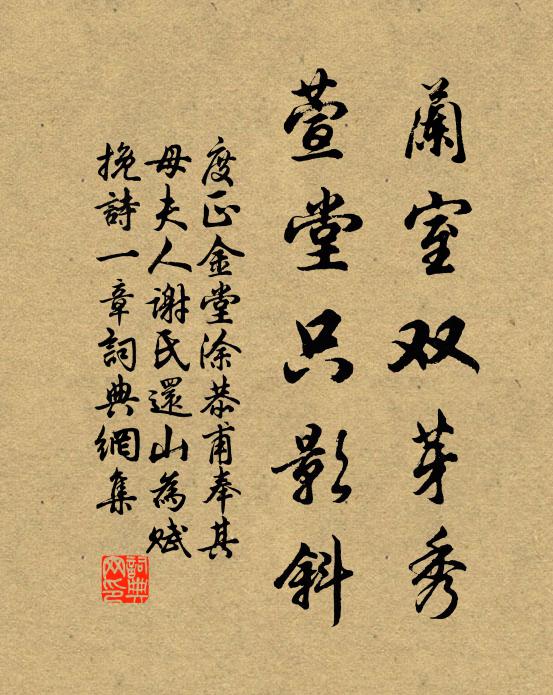 蘭室双芽秀
萱堂只影斜
度正金堂涂恭甫奉其
母夫人谢氏還山為賦
挽詩一章詞典網集
詞典
网印